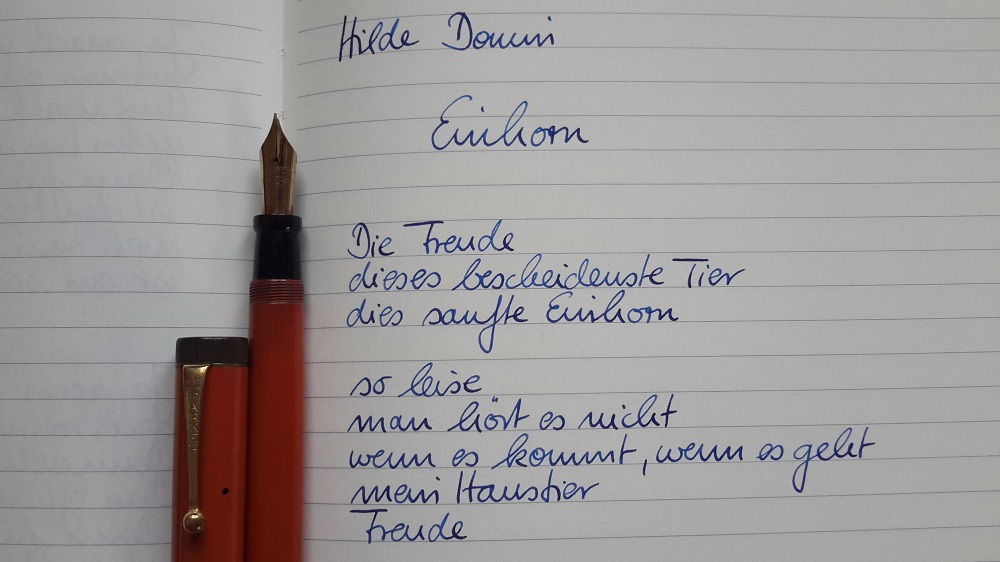 Hilde Domin
Einhorn
Die Freude
dieses bescheidenste Tier
dies sanfte Einhorn
so leise
man hört es nicht
wenn es kommt, wenn es geht
mein Haustier
Freude